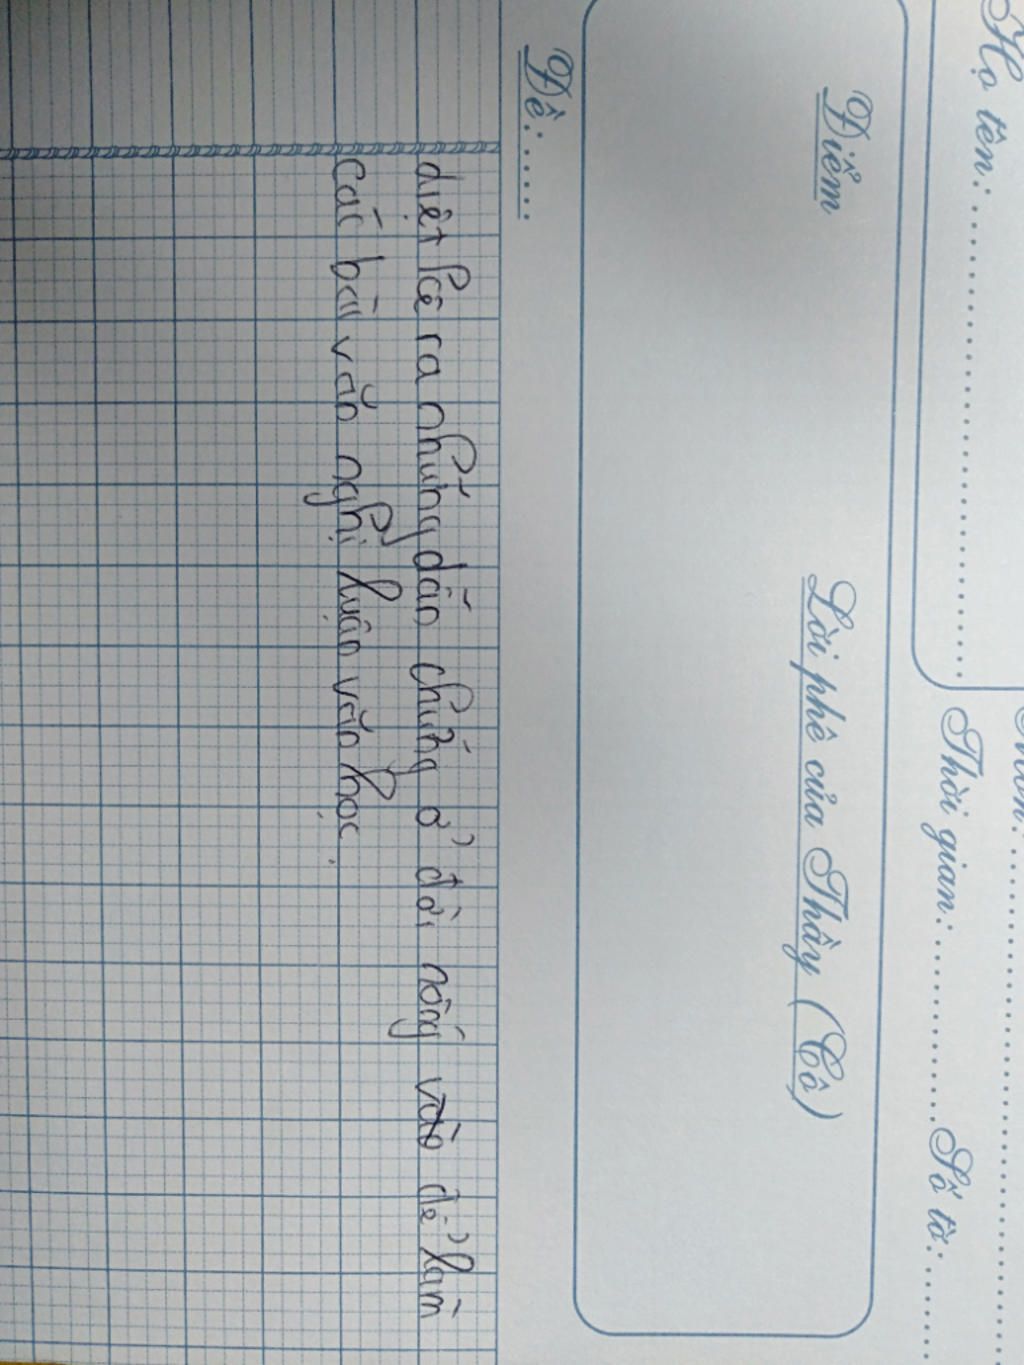 Họ tên:
Môn:
Thời gian:
Số tờ:
Điểm
Lời phê của Thầy (Cô)
Đề:
diệt kê ra những dẫn chứng ở đời nống vào để làm
các bài văn nghị luận văn học.